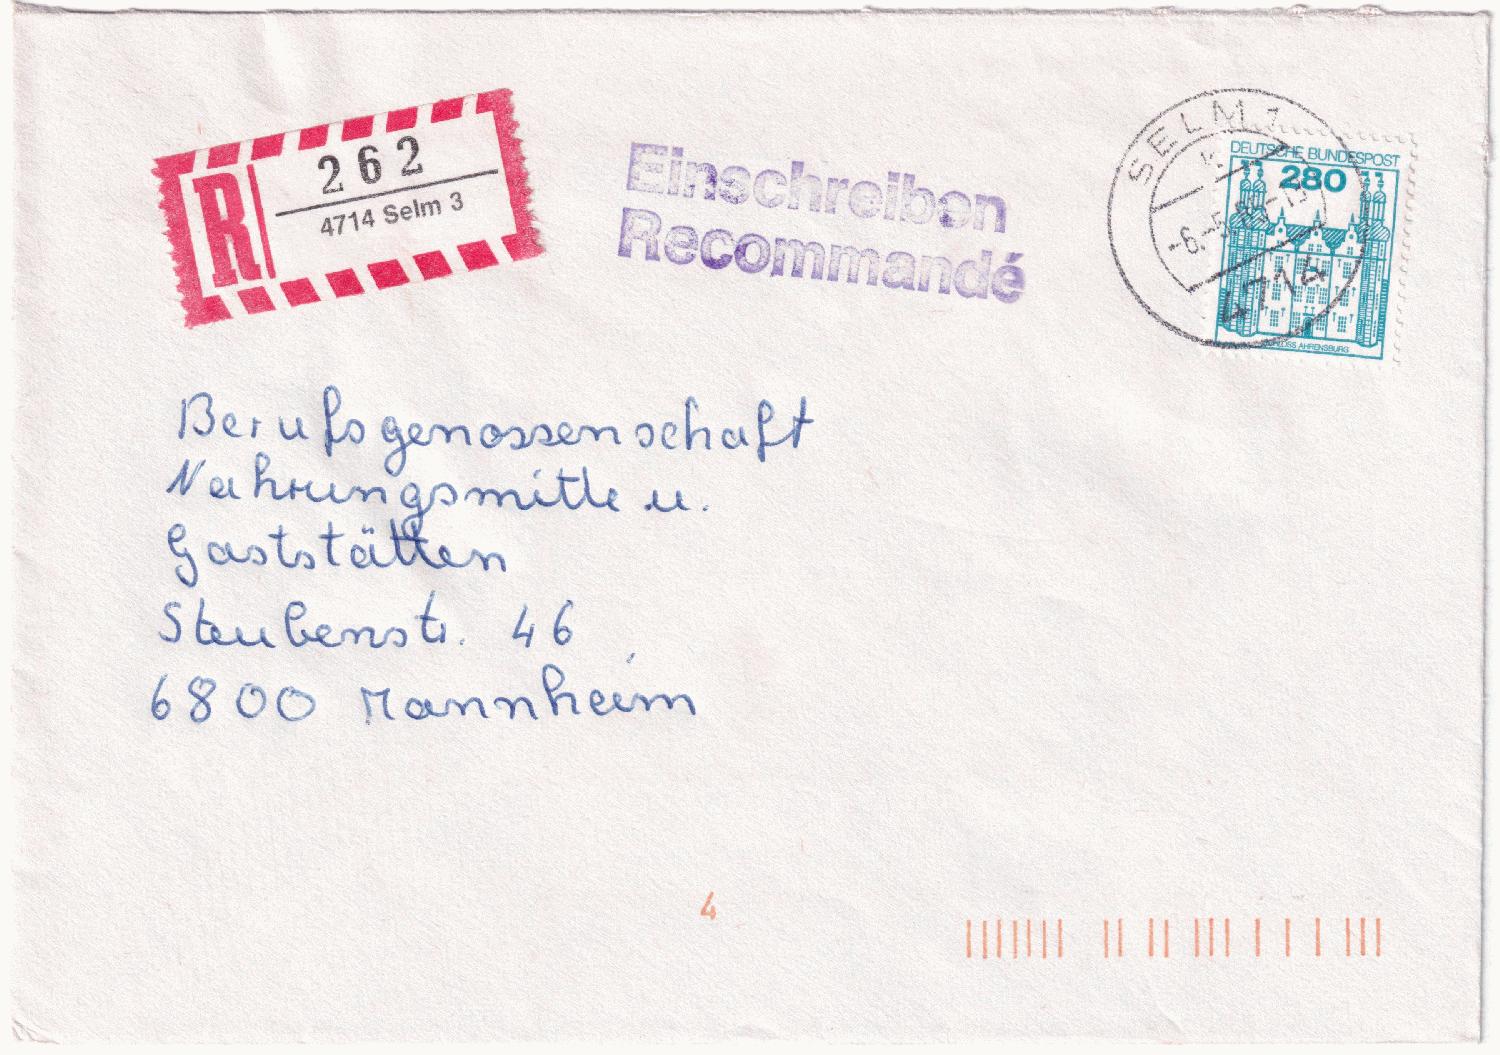 262
4714 Selm 3
R
Einschreiben
Recommandé
SELM 1
4714
DEUTSCHE BUNDESPOST
280
SCHLOSS AHRENSBURG
Berufsgenossenschaft
Nahrungsmittle u.
Gaststätten
Steubenstr. 46
6800 Mannheim
4